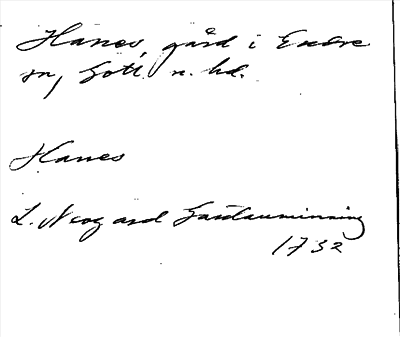 Hanes, gård i Endre
sn, Gotl. n. hd.
Hanes
L. Neogard Gautauminning
1732